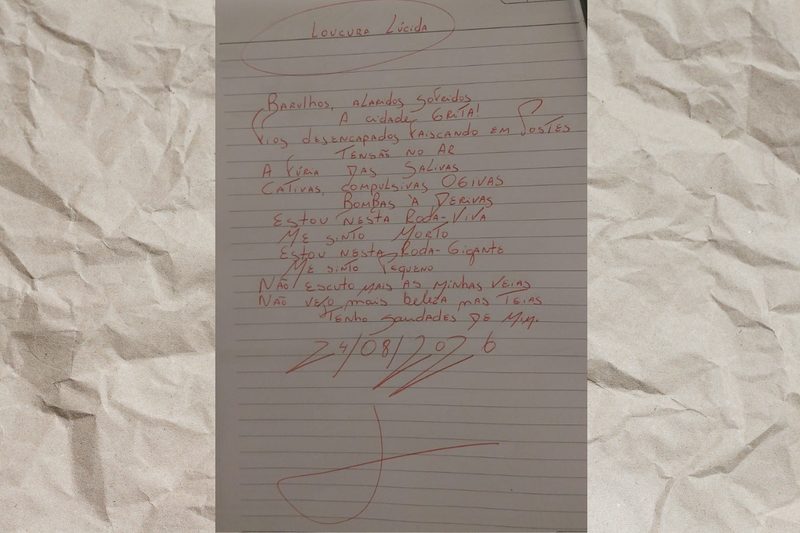 Loucura Lúcida
Barulhos, alaridos sofridos
A cidade GRITA!
Fios desencapados faiscando em Postes
Tensão no ar
A Fúria das Salivas
Cativas, compulsivas Ogivas
Bombas à Derivas
Estou nesta Roda-Viva
Me sinto Morto
Estou nesta Roda-Gigante
Me sinto Pequeno
Não escuto mais as minhas veias
Não vejo mais beleza nas Teias
Tenho saudades de Mim.
24/08/2026